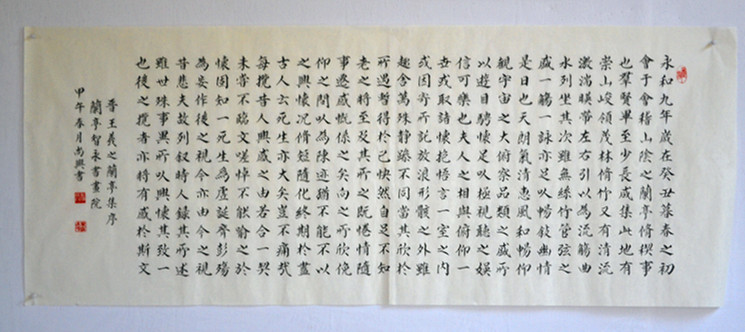 永和九年歲在癸丑暮春之初
會于會稽山陰之蘭亭脩稧事
也羣賢畢至少長咸集此地有
崇山峻領茂林脩竹又有清流
激湍暎帶左右引以為流觴曲
水列坐其次雖無絲竹管弦之
盛一觴一詠亦足以暢敘幽情
是日也天朗氣清惠風和暢仰
觀宇宙之大俯察品類之盛所
以遊目騁懷足以極視聽之娛
信可樂也夫人之相與俯仰一
世或取諸懷抱悟言一室之內
或因寄所託放浪形骸之外雖
趣舍萬殊靜躁不同當其欣於
所遇暫得於己怏然自足不知
老之將至及其所之既惓情隨
事遷感慨係之矣向之所欣俛
仰之間以為陳迹猶不能不以
之興懷況脩短隨化終期於盡
古人云死生亦大矣豈不痛哉
每攬昔人興感之由若合一契
未嘗不臨文嗟悼不能喻之於
懷固知一死生為虛誕齊彭殤
為妄作後之視今亦由今之視
昔悲夫故列敘時人錄其所述
雖世殊事異所以興懷其致一
也後之攬者亦將有感於斯文
晉王羲之蘭亭集序
蘭亭智永書畫院
甲午春月尚興書